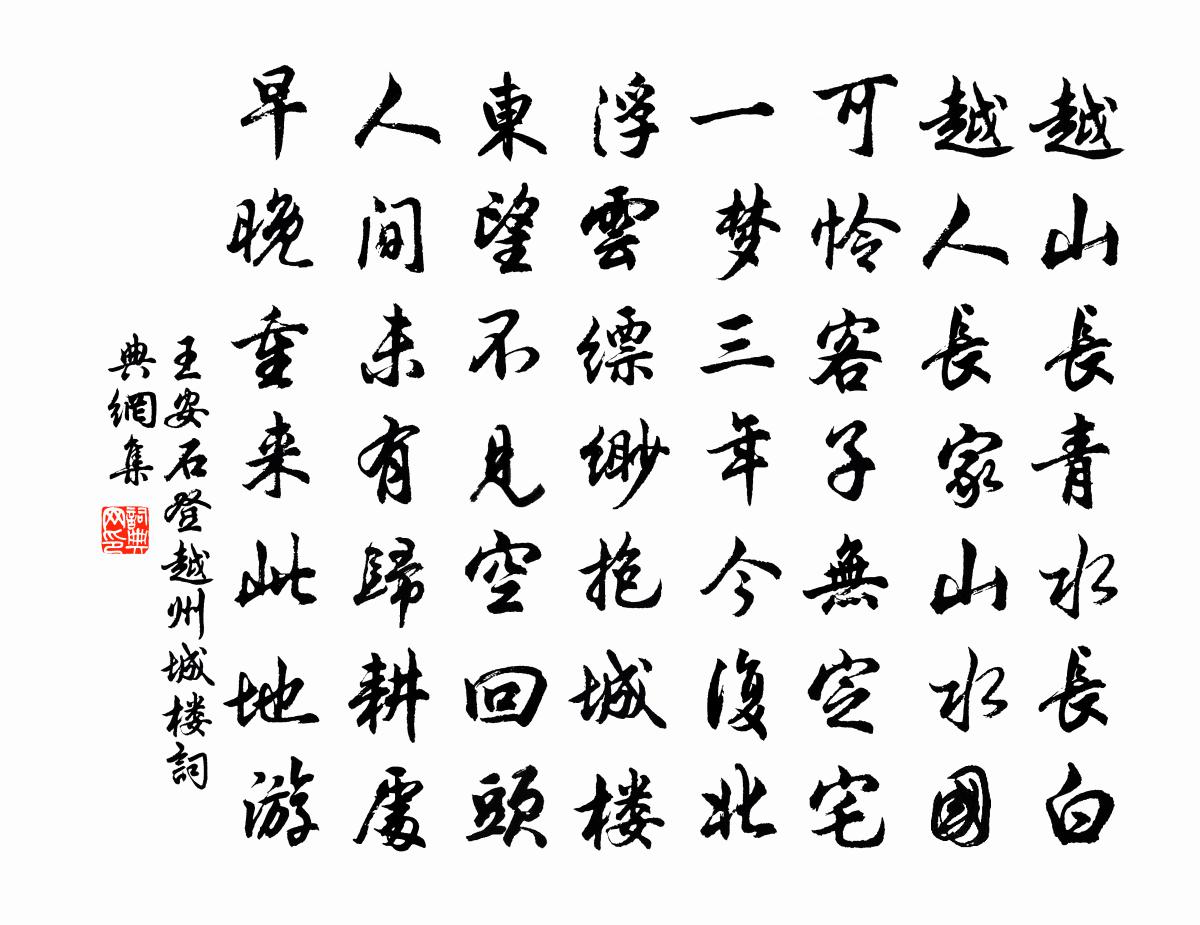 越山長青水長白
越人長家山水國
可怜客子無定宅
一梦三年今復北
浮雲縹緲抱城楼
東望不見空回頭
人间未有歸耕處
早晚重来此地游
王安石登越州城楼詞
典網集
詞典
网印